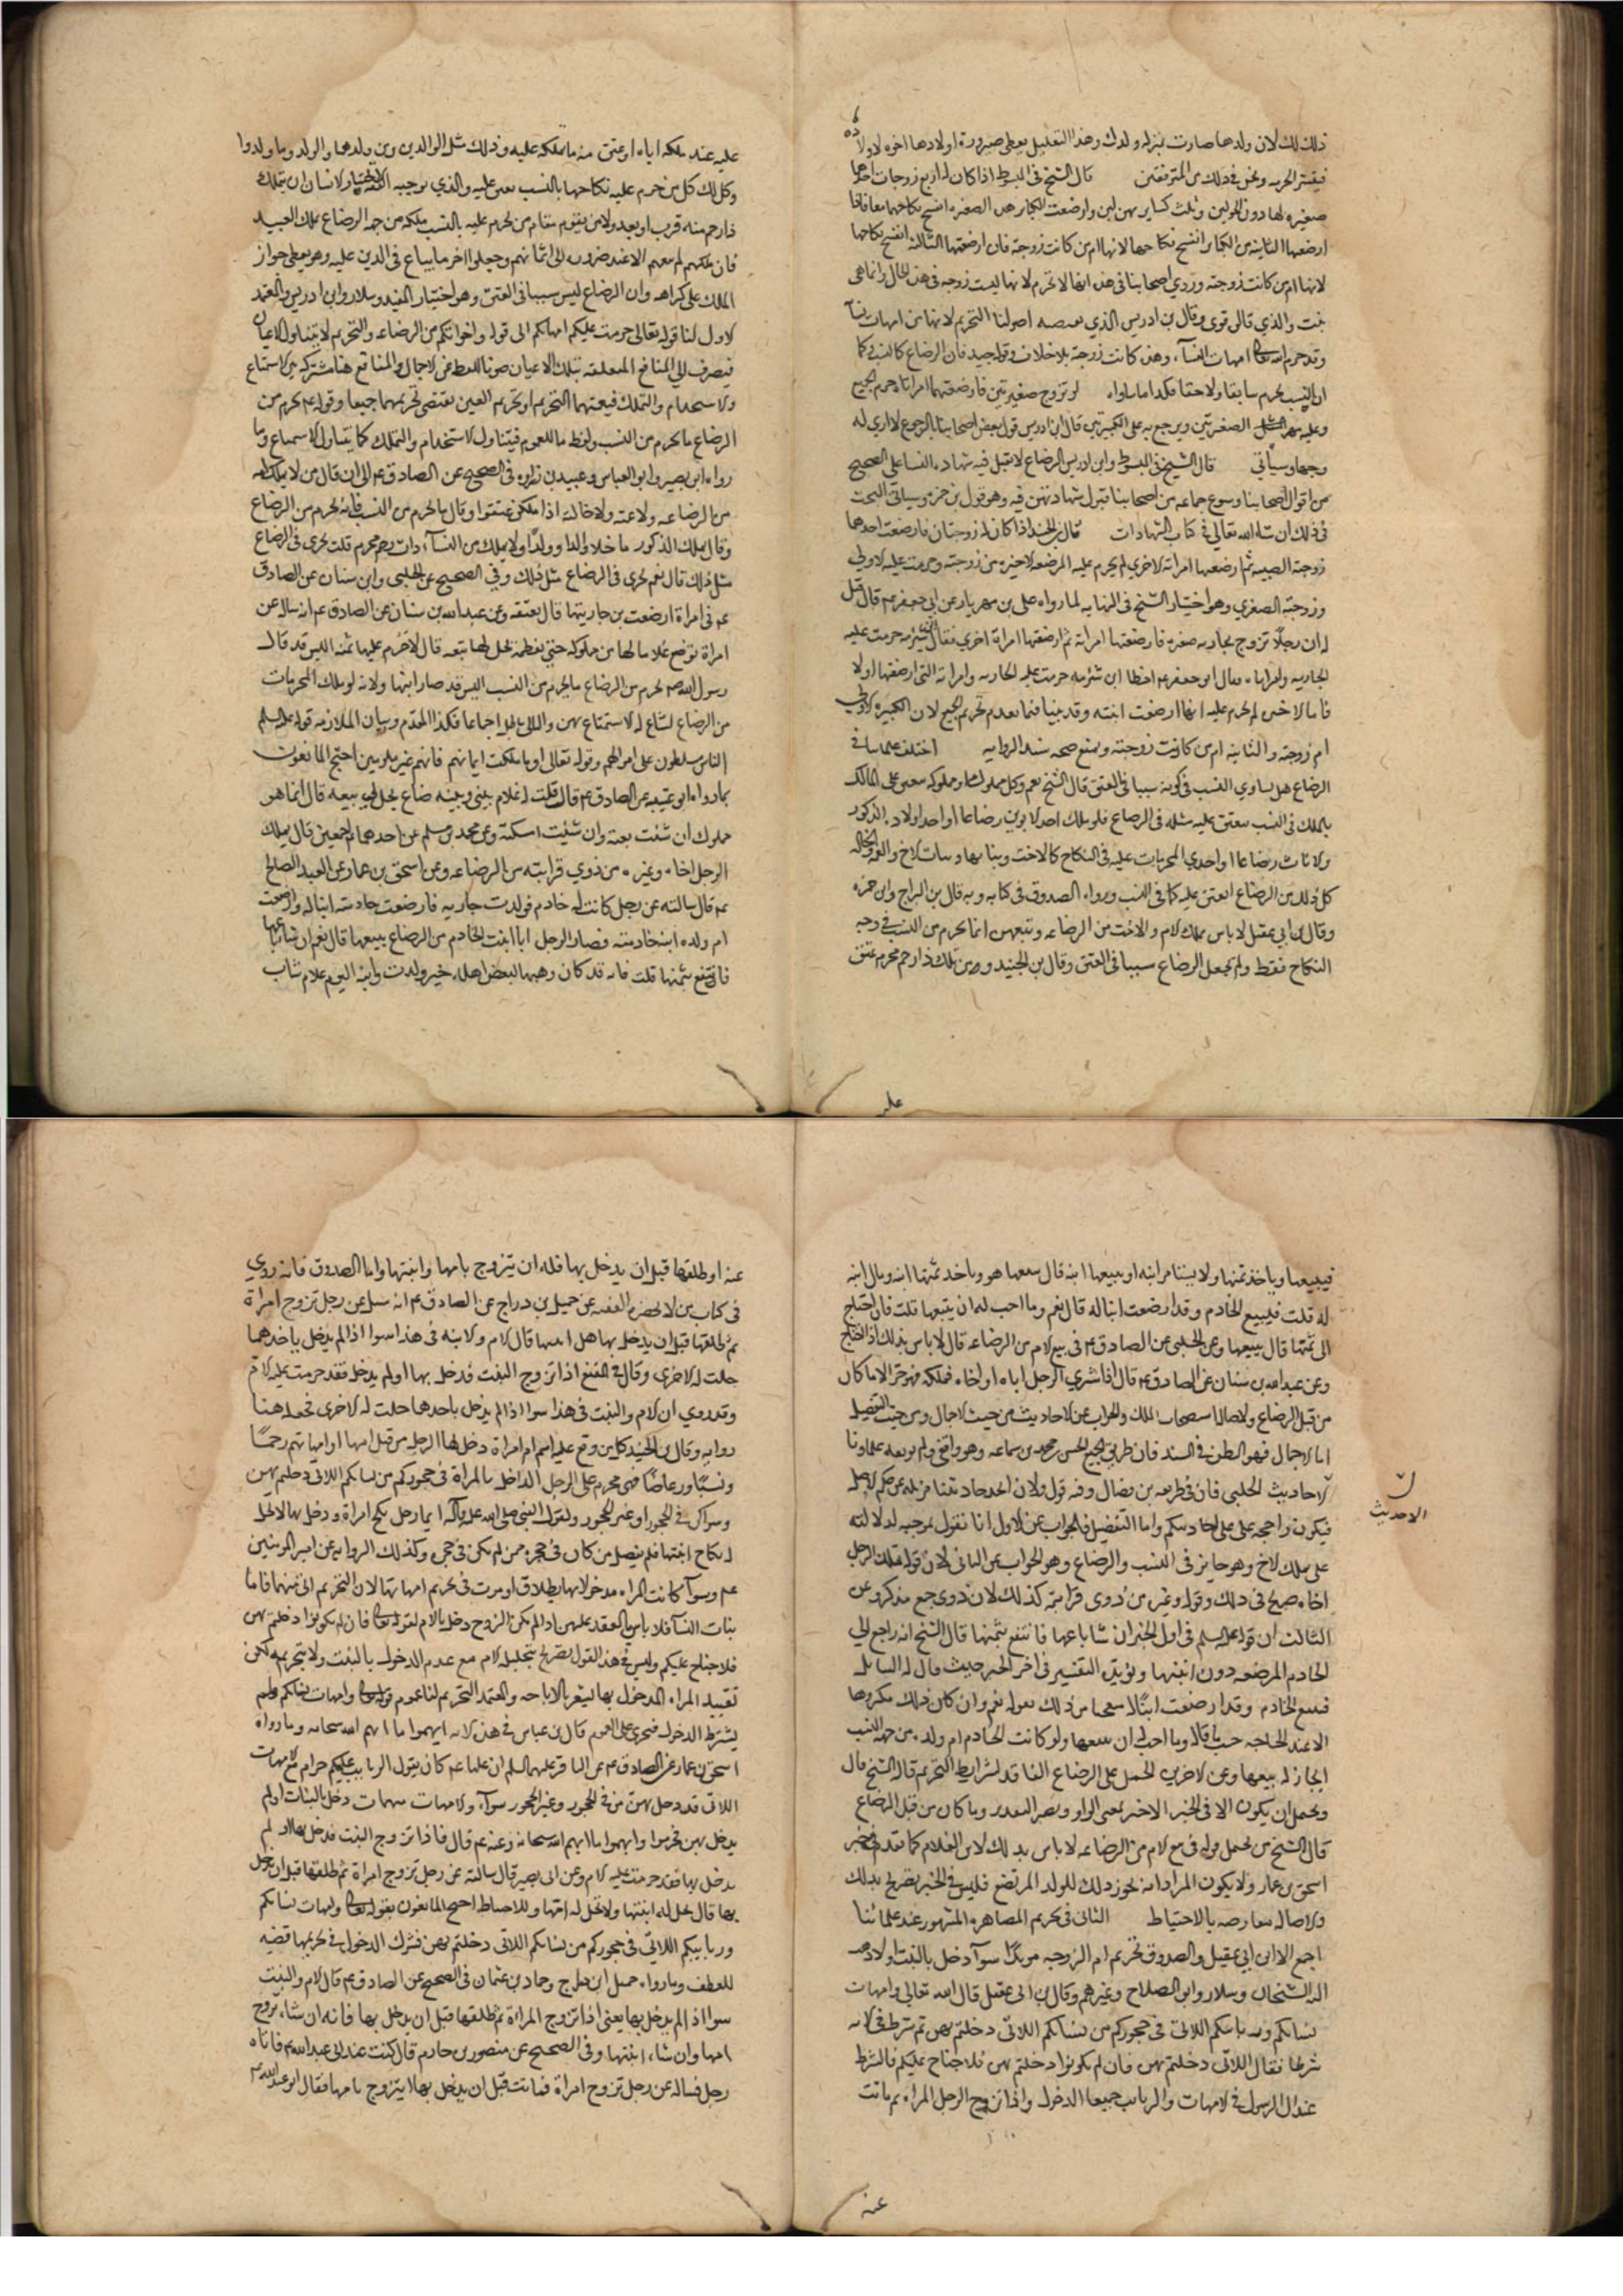 ذلك لك لان ولدها صارت بمنزلة ولدك وهذا التعليل يعطى صيرورة اولادها اخوه لاولاده
فينشر الحرمه ونحن في ذلك من المتوقفين قال الشيخ في المبسوط اذا كان له اربع زوجات احدها
صغيره لها دون الحولين وثلث كباير بهن لبن وارضعت الكبار هذه الصغيره انفسخ نكاحها معا فاذا
ارضعتها الثانيه من الكبار انفسخ نكاحها لانها ام من كانت زوجته فان ارضعتها الثالثه انفسخ نكاحها
لانها ام من كانت زوجته وروي اصحابنا في هذه انها لا تحرم لانها ليست زوجته في هذه الحال وانما هي
بنت والذي قاله قوي وقال بن ادريس الذي يقتضيه اصولنا التحريم لانها من امهات نسآئه
وقد حرم الله تعالى امهات النسآء وهذه كانت زوجته بلا خلاف وقوله جيد فان الرضاع كالنسب وكما
ان النسب يحرم سابقا ولاحقا فكذا ما ساواه لو تزوج صغيرتين فارضعتهما امراتاه حرم الجميع
وعليه مهر الصغيرتين ويرجع به على الكبيرتين قال ابن ادريس قول بعض اصحابنا بالرجوع لا اري له
وجها وسيأتي قال الشيخ في المبسوط وابن ادريس الرضاع لا تقبل فيه شهاده النسا على الصحيح
من اقوال اصحابنا وسوغ جماعه من اصحابنا قبول شهادتهن فيه وهو قول بن حمزه وسياتي البحث
في ذلك ان شآء الله تعالي في كتاب الشهادات قال بن الجنيد اذا كان له زوجتان فارضعت احدهما
زوجته الصبيه ثم ارضعها امراته الاخري لم يحرم عليه المرضعة الاخيره من زوجته وحرمت عليه الاولي
وزوجته الصغري وهو اختيار الشيخ في النهايه لما رواه علي بن مهزيار عن ابي جعفر عم قال قيل
له ان رجلا تزوج بجاريه صغيره فارضعتها امراته ثم ارضعتها امراة اخري فقال ابن شبرمه حرمت عليه
الجاريه وامراتاه فقال ابو جعفر عم اخطا ابن شبرمه حرمت عليه الجاريه وامراته التي ارضعتها اولا
فاما الاخيره لم تحرم عليه انها ارضعت ابنته وقد بينا فيما تقدم تحريم الجميع لان الكبيره الاولي
ام زوجته والثانيه ام من كانت زوجته ونمنع صحه سند الروايه اختلف علماؤنا في
الرضاع هل يساوي النسب في كونه سببا في العتق قال الشيخ نعم وكل مملوك او مملوكه ينعتق على المالك
بالملك في النسب ينعتق عليه مثله في الرضاع فلو ملك احد الابوين رضاعا او احد اولاده الذكور
والاناث رضاعا او احدي المحرمات عليه في النكاح كالاخت وبناتها وبنات الاخ والعمه والخاله
كل ذلك من الرضاع انعتق عليه كما في النسب ورواه الصدوق في كتابه وبه قال بن البراج وابن حمزه
وقال بن ابي عقيل لا باس بملك الام والاخت من الرضاعه وبيعهن انما يحرم من النسب في وجه
النكاح فقط ولم يجعل الرضاع سببا في العتق وقال بن الجنيد ومن ملك ذا رحم محرم عتق
عليه
عليه عند ملكه اياه او عتق منه ما يملكه عليه وذلك مثل الوالدين ومن ولدهما والولد وما ولدوا
وكذلك كل من حرم عليه نكاحها بالنسب يعتق عليه والذي يوجبه الفقه لا يختار لانسان ان يتملك
ذا رحم منه قرب او بعد ولا من يقوم مقام من يحرم عليه بالنسب ملكه من جهة الرضاع ملك العبيد
فان ملكهم لم يبعهم الا عند ضروره الى اثمانهم وجعلوا اخر ما يباع في الدين عليه وهو يعطى جواز
الملك على كراهه وان الرضاع ليس سببا في العتق وهو اختيار المفيد وسلار وابن ادريس والمعتمد
الاول لنا قوله تعالى حرمت عليكم امهاتكم الى قوله واخواتكم من الرضاعه والتحريم لا يتناول الاعيان
فيصرف الي المنافع المتعلقه بتلك الاعيان صونا للفظ عن الاجمال والمنافع هنا مشتركه بين الاستمتاع
والاستخدام والتملك فيعمها التحريم او تحريم العين يقتضى تحريمهما جميعا وقوله عم يحرم من
الرضاع ما يحرم من النسب ولفظ ما للعموم فيتناول الاستخدام والتملك كما يتناول الاستمتاع وما
رواه ابن بصير وابو العباس وعبيد بن زراره في الصحيح عن الصادق عم الى ان قال من لا يملكه
من الرضاعه ولا عمته ولا خالته اذا ملكن عتقوا وقال ما يحرم من النسب فانه يحرم من الرضاع
وقال يملك الذكور ما خلا والدا وولدا ولا يملك من النسآء ذات رحم محرم قلت يجري في الرضاع
مثل ذلك قال نعم يجري في الرضاع مثل ذلك وفي الصحيح عن الحلبي وابن سنان عن الصادق
عم في امراة ارضعت بن جاريتها قال يعتقه وعن عبد الله بن سنان عن الصادق عم انه ساله عن
امراة ترضع غلاما لها من مملوكه حتي تفطمه يحل لها بيعه قال لا حرم عليها ثمنه اليس قد قال
رسول الله صم يحرم من الرضاع ما يحرم من النسب اليس قد صار ابنها ولانه لو ملك المحرمات
من الرضاع لشاع له الاستمتاع بهن والتالي باطل اجماعا فكذا المقدم وبيان الملازمه قوله عليه السلم
الناس مسلطون على اموالهم وقوله تعالى او ما ملكت ايمانهم فانهم غير ملومين احتج المانعون
بما رواه ابو عيينه عن الصادق عم قال قلت له غلام بيني وبينه رضاع يحل لي بيعه قال انما هو
مملوك ان شئت بعته وان شئت امسكته وعن محمد بن مسلم عن احدهما عم قال يملك
الرجل اخاه وغيره من ذوي قرابته من الرضاعه وعن اسحق بن عمار عن العبد الصالح
عم قال سالته عن رجل كانت له خادم فولدت جاريه فارضعت خادمته ابنا له وارضعت
ام ولده ابنه خادمته فصار الرجل ابا ابنت الخادم من الرضاع يبيعها قال نعم ان شآء باعها
فانتفع بثمنها قلت فانه قد كان وهبها لبعض اهله حين ولدت وابنه اليوم غلام شاب
فيبيعها وياخذ ثمنها ولا يستامر ابنه او يبيعها ابنه قال يبيعها هو وياخذ ثمنها ابنه ومال ابنه
له قلت فيبيع الخادم وقد ارضعت ابنا له قال نعم وما احب له ان يبيعها قلت فان احتاج
الى ثمنها قال يبيعها وعن الحلبي عن الصادق عم في بيع الام من الرضاعه قال لا باس بذلك اذا احتاج
وعن عبد الله بن سنان عن الصادق عم قال اذا اشتري الرجل اباه او اخاه فملكه فهو حر الا ما كان
من قبل الرضاع ولاصالة استصحاب الملك والجواب عن الاحاديث من حيث الاجمال ومن حيث التفصيل
اما الاجمال فهو الطعن في السند فان طريق الجميع الحسن بن محمد بن سماعه وهو واقفي ولم يوثقه علماونا
الاحاديث الحلبي فان في طريقه بن فضال وفيه قول ولان احد احاديثنا مزيله عن حكم الاصل
الاحديث
فيكون راجحه على احاديثكم واما التفصيل فالجواب عن الاول انا نقول بموجبه لدلالته
على ملك الاخ وهو جايز في النسب والرضاع وهو الجواب عن الثاني لان قوله يملك الرجل
اخاه صريح في ذلك وقوله وغيره من ذوي قرابته كذلك لان ذوي جمع مذكر وعن
الثالث ان قوله عليه السلم في اول الخبر ان شآء باعها فانتفع بثمنها قال الشيخ انه راجع الي
الخادم المرضعه دون ابنتها ويؤيد التفسير في اخر الخبر حيث قال له السايل
فيبيع الخادم وقد ارضعت ابنا له متعجبا من ذلك بقوله نعم وان كان ذلك مكروها
الا عند الحاجه حسب ما قال وما احب له ان يبيعها ولو كانت الخادم ام ولده من جهه النسب
لجاز له بيعها وعن الاخرين الحمل على الرضاع الفاقد لشرايط التحريم قاله الشيخ قال
ويحتمل ان يكون الا في الخبر الاخير بمعنى الواو ويصير التقدير وما كان من قبل الرضاع
قال الشيخ ويحتمل قوله في بيع الام من الرضاعه لا باس بذلك لابى الغلام كما تقدم في خبر
اسحق بن عمار ولا يكون المراد انه يجوز ذلك للولد المرتضع فليس في الخبر تصريح بذلك
والاصاله معارضه بالاحتياط الثاني في تحريم المصاهره المشهور عند علمائنا
اجمع الا ابن ابي عقيل والصدوق تحريم ام الزوجه موبدا سوآء دخل بالبنت او لا ذهب
اليه الشيخان وسلار وابو الصلاح وغيرهم وقال بن ابي عقيل قال الله تعالي وامهات
نسائكم وربائبكم اللاتي في حجوركم من نسائكم اللاتي دخلتم بهن ثم شرط في الايه
شرطا فقال اللاتي دخلتم بهن فان لم تكونوا دخلتم بهن فلا جناح عليكم فالشرط
عند ال الرسول في الامهات والربائب جميعا الدخول واذا تزوج الرجل المراه ثم ماتت
عنه
عنه او طلقها قبل ان يدخل بها فله ان يتزوج بامها وابنتها واما الصدوق فانه روي
في كتاب من لا يحضره الفقيه عن جميل بن دراج عن الصادق عم انه سئل عن رجل تزوج امراة
ثم طلقها قبل ان يدخل بها هل ابنتها قال الام والابنه في هذا سوآ اذا لم يدخل باحدهما
حلت له الاخري وقال في المقنع اذا تزوج البنت فدخل بها او لم يدخل فقد حرمت عليه الام
وقد روي ان الام والبنت في هذا سوآ اذا لم يدخل باحدها حلت له الاخرى فجعله هنا
روايه وقال بن الجنيد كل من وقع عليه اسم ام امراة دخل بها الرجل من قبل امها او امهاتهم رحما
ونسبا ورضاعا فهي محرم على الرجل الداخل بالمراة في حجوركم من نسائكم اللاتي دخلتم بهن
وسوآ كن في الحجور او غير الحجور ولقول النبي صلى الله عليه وآله ايما رجل نكح امراة ودخل بها لا تحل
له نكاح ابنتها فلم يفصل من كان في حجره ممن لم تكن في حجره وكذلك الروايه عن امير المؤمنين
عم وسوآء كانت المراه مدخولا بها بطلاق او موت في تحريم امهاتها لان التحريم اتى منهما فاما
بنات النسآء فلا باس بالعقد عليهن اذا لم يكن الزوج دخل بالام لقوله تعالى فان لم تكونوا دخلتم بهن
فلا جناح عليكم وليس في هذا القول تصريح بتحليل الام مع عدم الدخول بالبنت ولا بتحريمه لكن
تقييد المراه المدخول بها يشعر بالاباحه والمعتمد التحريم لنا عموم قوله تعالى وامهات نسائكم ولم
يشترط الدخول فيجرى على العموم قال بن عباس في هذه الايه ابهموا ما ابهم الله سبحانه وما رواه
اسحق بن عمار عن الصادق عم عن الباقر عليهما السلم ان عليا عم كان يقول الربايب عليكم حرام مع الامهات
اللاتي قد دخل بهن في الحجور وغير الحجور سوآء والامهات مبهمات دخل بالبنات او لم
يدخل بهن فحرموا وابهموا ما ابهم الله سبحانه وعنه عم قال فاذا تزوج البنت فدخل بها او لم
يدخل بها فقد حرمت عليه الام وعن ابى بصير قال سالته عن رجل تزوج امراة ثم طلقها قبل ان يدخل
بها قال تحل له ابنتها ولا تحل له امها وللاحتياط احتج المانعون بقوله تعالى وامهات نسائكم
وربايبكم اللاتي في حجوركم من نسائكم اللاتي دخلتم بهن فشرك الدخول في تحريمها قضيه
للعطف وما رواه جميل ابن دراج وحماد بن عثمان في الصحيح عن الصادق عم قال الام والبنت
سوا اذا لم يدخل بها يعنى اذا تزوج المراة ثم طلقها قبل ان يدخل بها فانه ان شآء تزوج
امها وان شآء ابنتها وفي الصحيح عن منصور بن حازم قال كنت عند ابي عبد الله عم فاتاه
رجل فساله عن رجل تزوج امراة فماتت قبل ان يدخل بها ايتزوج بامها فقال ابو عبد الله عم